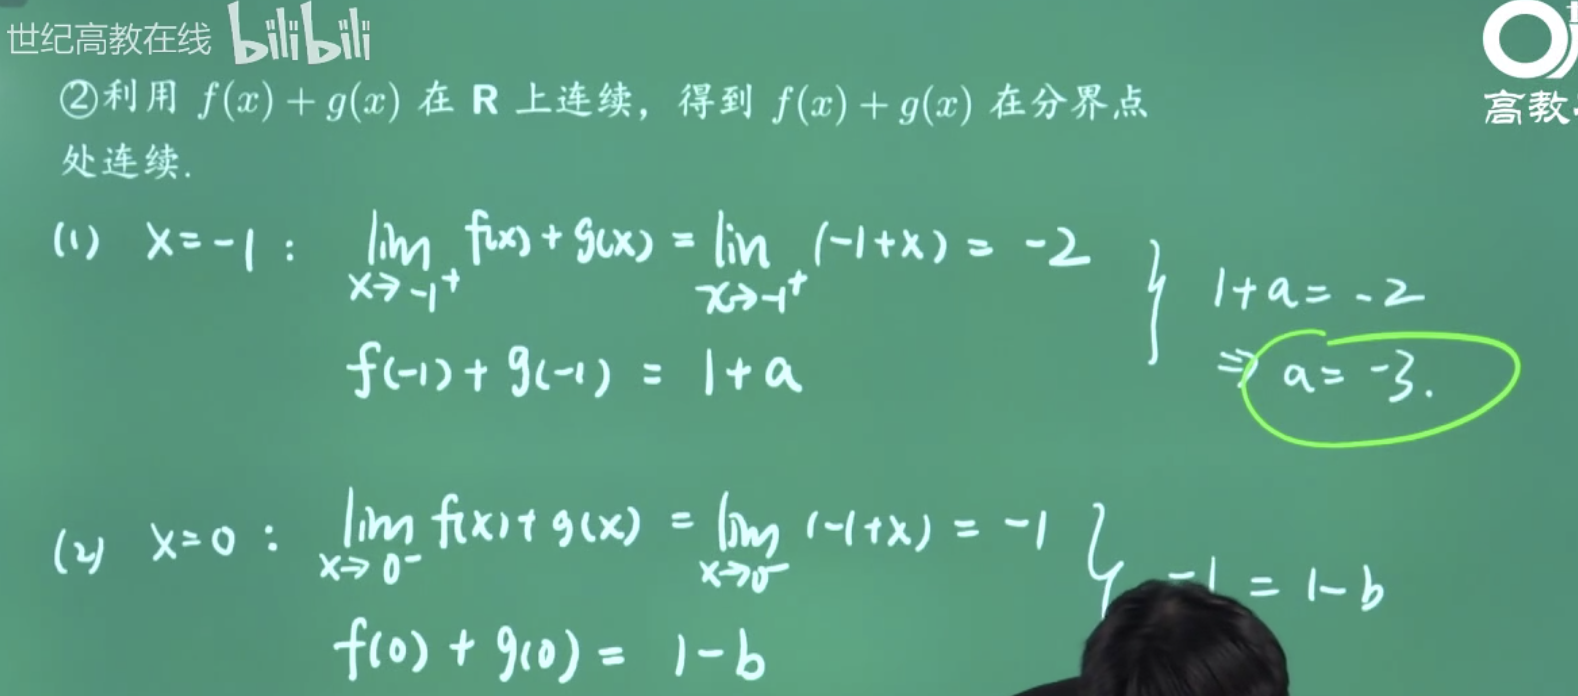 世纪高教在线 bilibili
高教
②利用 f(x) + g(x) 在 R 上连续，得到 f(x) + g(x) 在分界点
处连续.
(1) x=-1: lim x→-1⁺ f(x)+g(x) = lim x→-1⁺ (-1+x) = -2
f(-1)+g(-1) = 1+a
} 1+a=-2
⇒ a=-3.
(2) x=0: lim x→0⁻ f(x)+g(x) = lim x→0⁻ (-1+x) = -1
f(0)+g(0) = 1-b
} -1 = 1-b